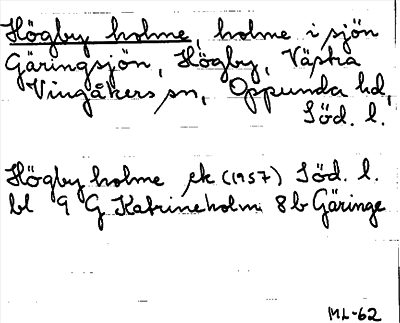 Högby holme, holme i sjön
Gäringsjön, Högby, Västra
Vingåkers sn, Oppunda hd,
Söd. l.
Högby holme ek (1957) Söd. l.
bl 9 G Katrineholm 8b Gäringe
ML-62